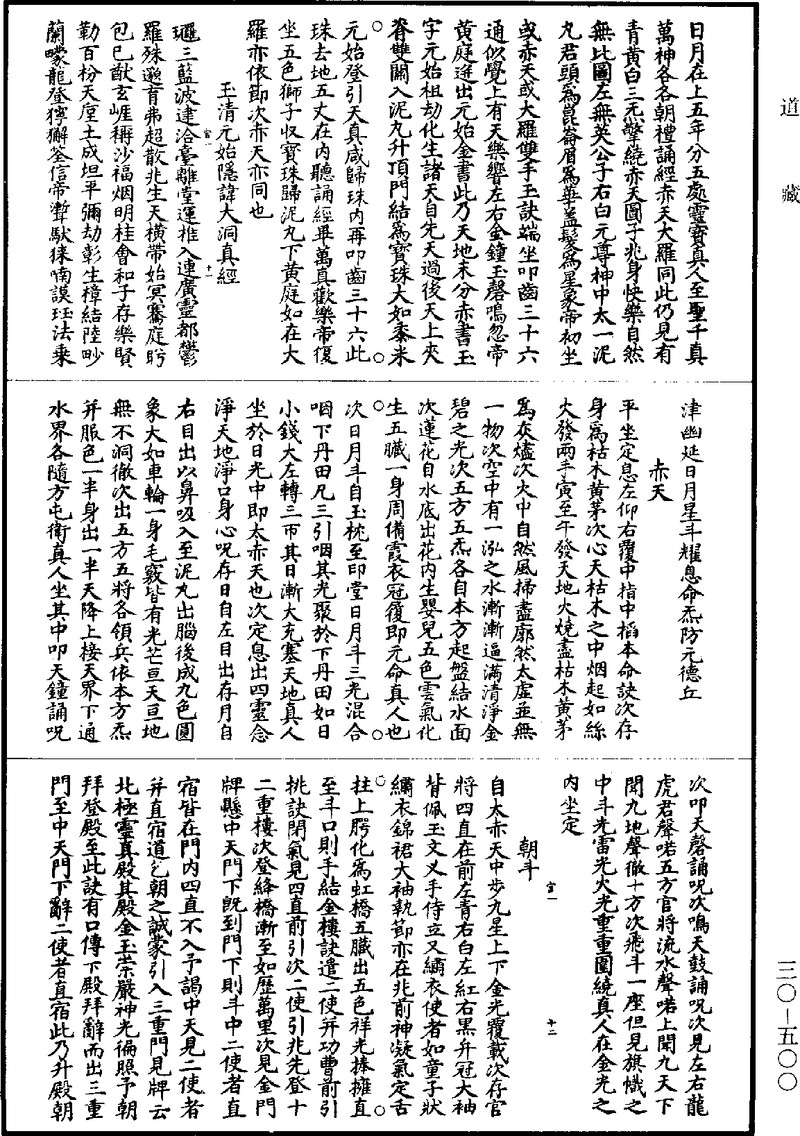 道藏
日月在上五年分五處靈寶真人至聖千真
萬神各各朝禮誦經赤天大羅同此仍見有
青黃白三炁擎繞赤天圓子兆身快樂自然
無比圖左無英公子右白元尊神中太一泥
丸君頭為崑崙眉為華蓋髮為星象帝初坐
或赤天或大羅雙手玉訣端坐叩齒三十六
通似覺上有天樂響左右金鐘玉磬鳴忽帝
黃庭迸出元始金書此乃天地未分赤書玉
字元始祖劫化生諸天自先天過後天上夾
脊雙關入泥丸升頂門結為寶珠大如黍米
元始登引天真咸歸珠內再叩齒三十六此
珠去地五丈在內聽誦經畢萬真歡樂帝復
坐五色獅子收寶珠歸泥丸下黃庭如在大
羅亦依節次赤天亦同也
玉清元始隱諱大洞真經
㻻三藍波逮洽臺離堂運推入連廣靈都鬱
羅殊邈育弗超散兆生天橫帶始冥騫庭眄
包巳猷玄崕稱沙福烟明桂會和子存樂賢
勒百枌天厔土成坦平彌劫彰生樟結陸眇
蘭曚龍登獰獬筌信帝㲲馱徠喃謨珏法乘
津幽延日月星斗耀息命炁防元德丘
赤天
平坐定息左仰右覆中指中搯本命訣次存
身為枯木黃茅次心天枯木之中烟起如絲
大發兩手寅至午發天地火燒盡枯木黃茅
為灰燼次火中自然風掃盡廓然太虛並無
一物次空中有一泓之水漸漸逼滿清淨金
碧之光次五方五炁各自本方起盤結水面
次蓮花自水底出花內生嬰兒五色雲氣化
生五臟一身周備霞衣冠履即元命真人也
次日月斗自玉枕至印堂日月斗三光混合
咽下丹田凡三引咽其光聚於下丹田如日
小錢大左轉三帀其日漸大充塞天地真人
坐於日光中即太赤天也次定息出四靈念
淨天地淨口身心呪存日自左目出存月自
右目出以鼻吸入至泥丸出腦後成九色圓
象大如車輪一身毛竅皆有光芒亘天亘地
無不洞徹次出五方五將各領兵依本方炁
并服色一半身出一半天降上接天界下通
水界各隨方屯衛真人坐其中叩天鐘誦呪
次叩天磬誦呪次鳴天鼓誦呪次見左右龍
虎君聲喏五方官將流水聲喏上聞九天下
聞九地聲徹十方次飛斗一座但見旗幟之
中斗光雷光火光重重圍繞真人在金光之
內坐定
朝斗
自太赤天中步九星上下金光覆載次存官
將四直在前左青右白左紅右黑弁冠大袖
背佩玉文叉手侍立又繡衣使者如童子狀
繡衣錦裙大袖執節亦在兆前神凝氣定舌
拄上腭化為虹橋五臟出五色祥光捧擁直
至斗口則手結金樓訣遣二使并功曹前引
挑訣閉氣見四直前引次二使引兆光登十
二重樓次登絳橋漸至如歷萬里次見金門
牌懸中天門下旣到門下則斗中二使者直
宿皆在門內四直不入予謁中天見二使者
并直宿道乞朝之誠蒙引入三重門見牌云
北極靈真殿其殿金玉崇嚴神光徧照予朝
拜登殿至此訣有口傳下殿拜辭而出三重
門至中天門下辭二使者直宿此乃升殿朝
三〇—五〇〇